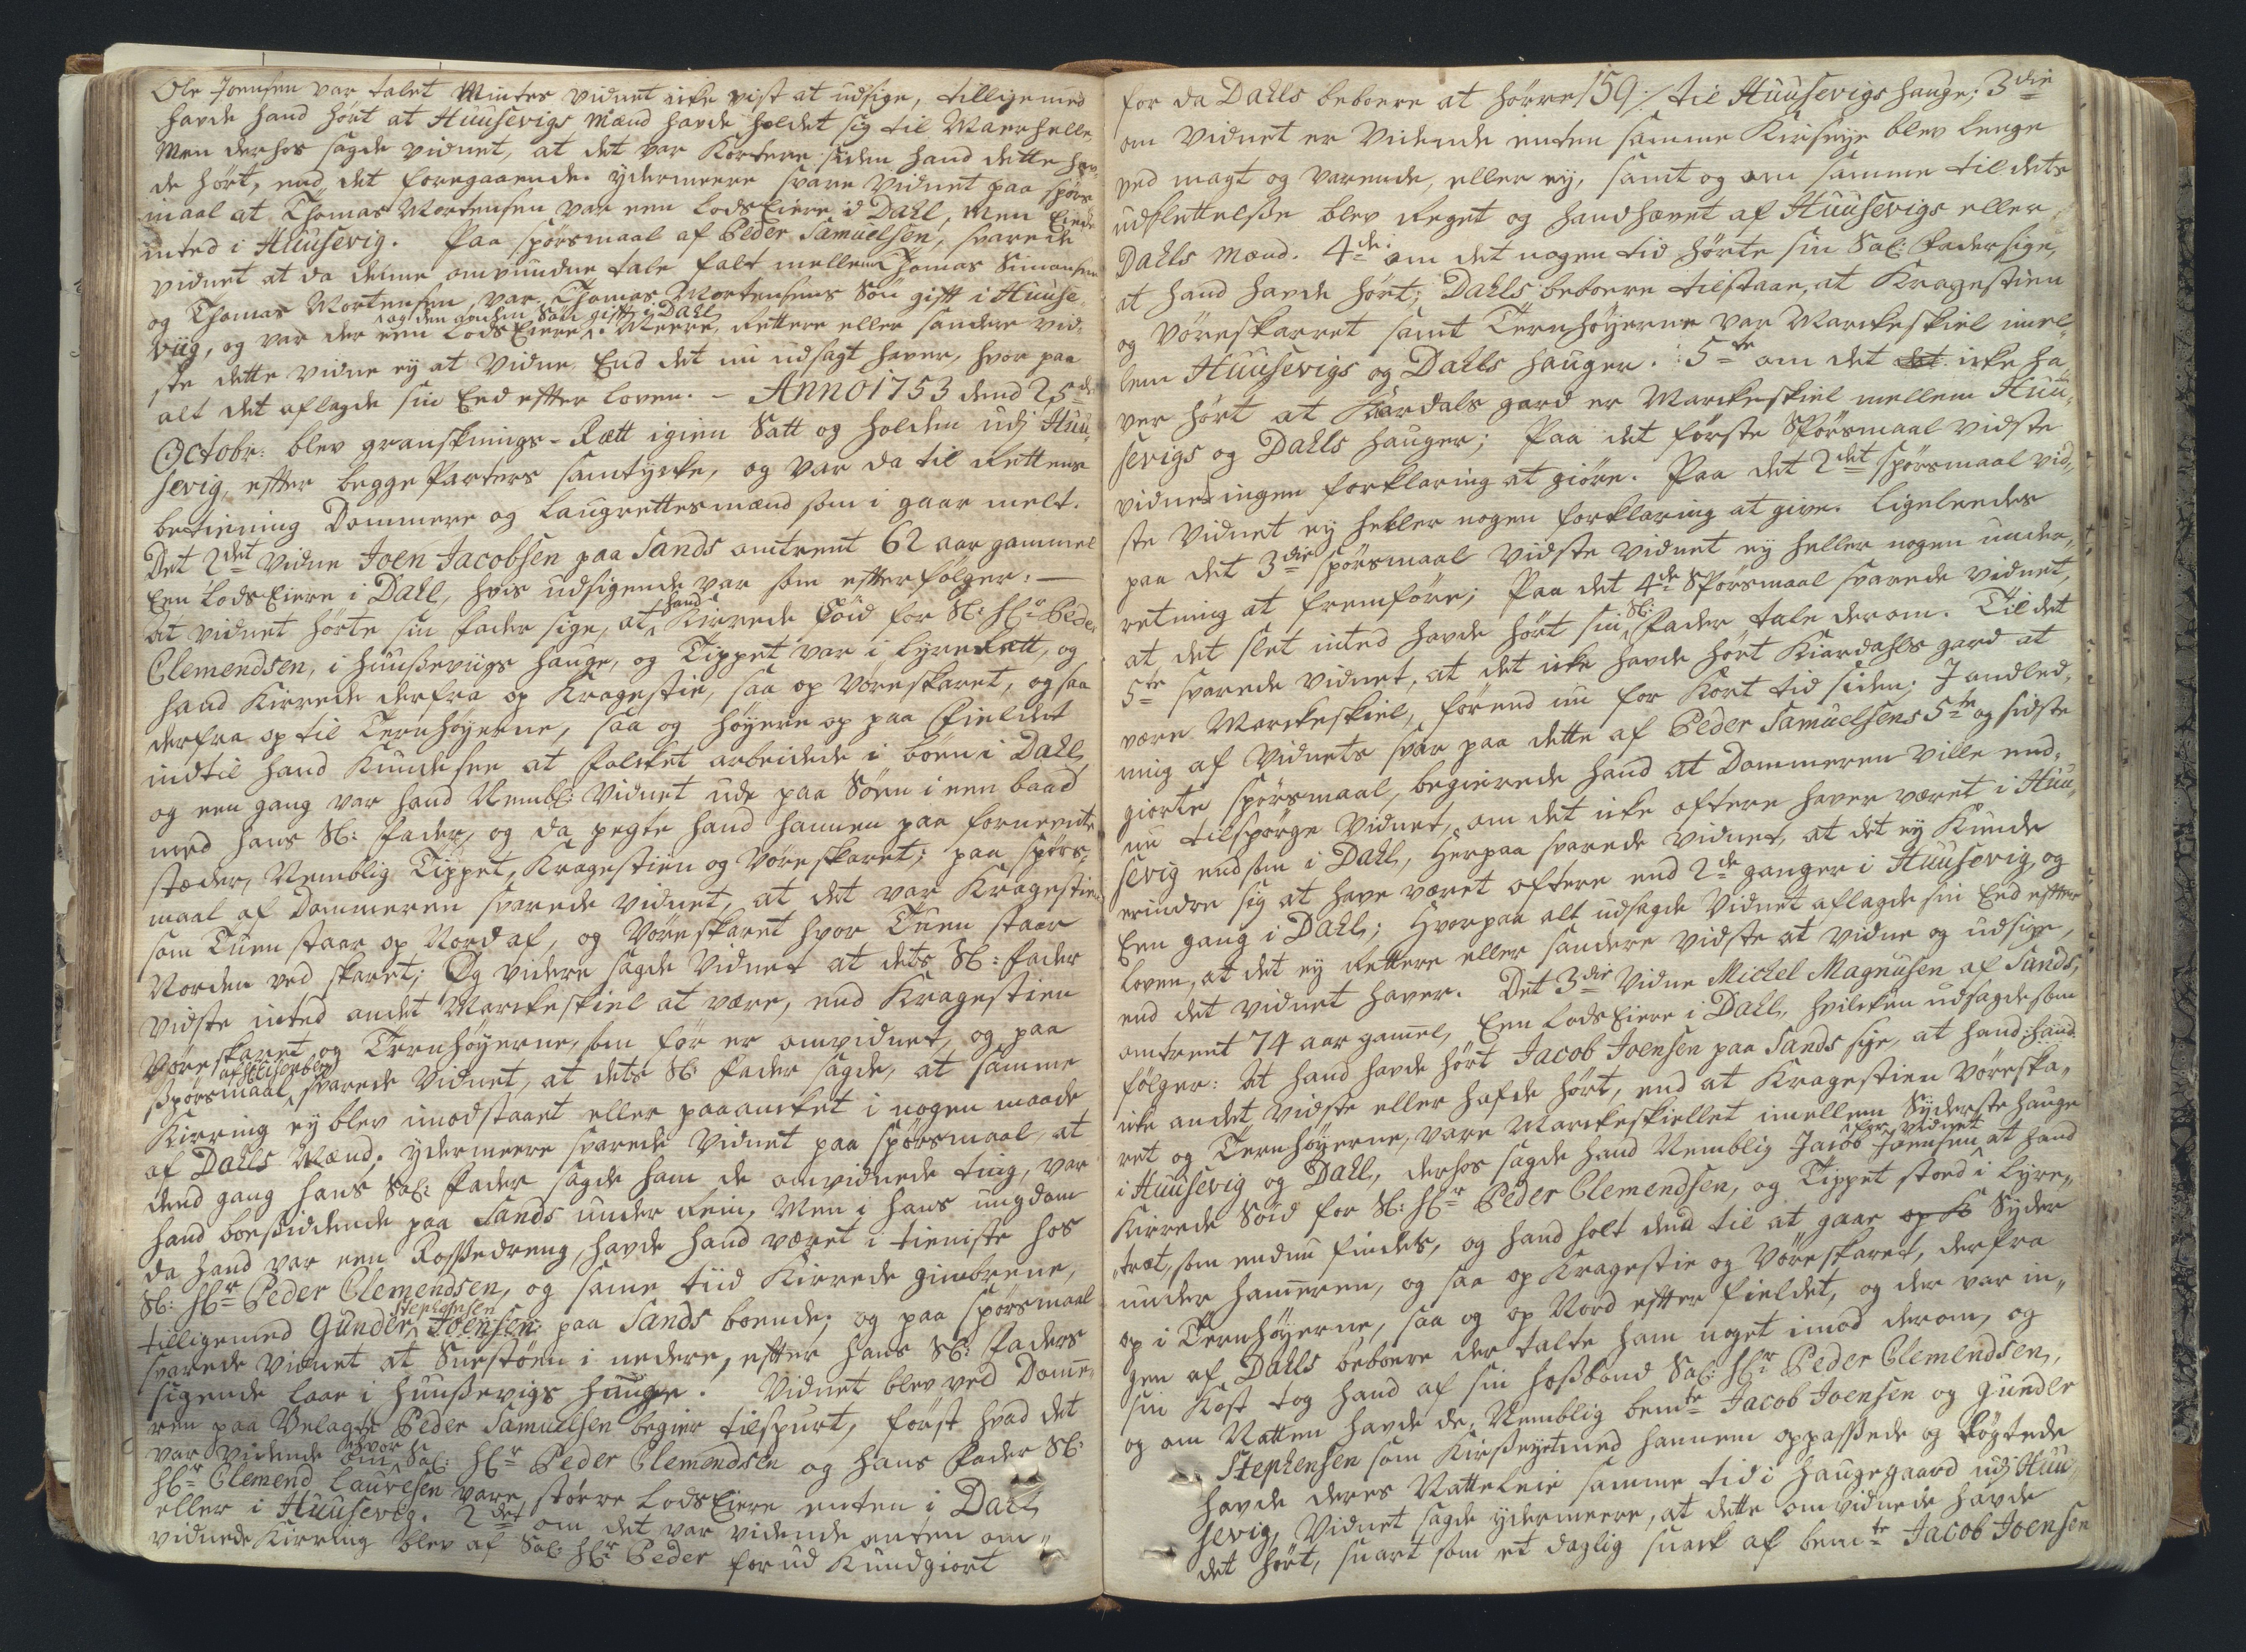 Ole Joensen var talet Mintes vidnet icke vist at udsige, tilligemed
havde hand hört at Huusevigs Mænd havde holdet sig til Marhelle,
Men derhos sagde vidnet, at det var Kortere siden hand dette hav„
de hört, end det foregaaende. ydermeere svare Vidnet paa spörs„
maal at Thomas Mortensen var een lodsEiere i Dahl, Men Eiede
inted i Huusevig. Paa spörsmaal af Peder Samuelsen, svarede
vidnet at da denne omvundne tale falt mellem Thomas Simonsen
og Thomas Mortensen, var Thomas Mortensens Sön gift i Huuse„
og den anden Sön gift i Dahl
viig, og var der een lodsEiere, Meere, Rettere eller sandere vid„
ste dette vidne ej at Vidne End det nu udsagt haver, hvor paa
alt det aflagde sin Eed efter loven. – ANNO 1753 dend 25de
Octobr: blev gransknings-Rætt igien Satt og holden udj Huu„
sevig, efter begge Parters samtycke, og var da til Rettens
betiening Dommere og laugrettesmænd som i gaar melt.
Det 2det Vidne Joen Jacobsen paa Sands omtrent 62 aar gammel
Een lodsEiere i Dahl, hvis udsigende var som efterfölger: –
hand
At vidnet hörte sin fader sige, at Kirrede Söid for Sl: Hr Peder
Clemendsen, i Huusseviigs Hauge, og Tippet var i lyretratt, og
hand Kirrede derfra op Kragestie, saa op Vöreskaret, og saa
derfra op til Ternhöyerne, saa og höyere op paa Fieldet
indtil hand Kunde see at folcket arbeidede i böen i Dahl,
og een gang var hand Nembl: Vidnet ude paa Söen i een baad
med hans Sl: Fader, og da pegte hand hannem paa forneente
stæder, Nemblig Tippet, Kragestien og Vöreskaret; paa spörs„
maal af Dommeren svarede vidnet, at det var Kragestien
som Tuen staar op Nord af, og Vöreskaret hvor Tuen staar
Norden ved skaret; Og videre sagde Vidnet at dets Sl: Fader
vidste inted andet Marckeskiel at være, end Kragestien
Vöreskaret og Ternhöyerne, som för er omvidnet, og paa
spörsmaal svarede Vidnet, at dets Sl: Fader sagde, at samme
Kirring ej blev imodstaaet eller paaancket i nogen maade
af Dahls Mænd. ydermeere svarede Vidnet paa spörsmaal, at
dend gang hans Sal: Fader sagde ham de omvidnede ting, var
hand boesiddende paa Sands under Rein, Men i hans ungdom
da hand var een Rossedreng, havde hand været i tieniste hos
Sl: Hr Peder Clemendsen, og same tiid Kirrede gimbrene,
Stephansen
tilligemed Gunder Joensen paa Sands boende; og paa spörsmaal
svarede Vidnet at Snestöen i nedere, efter hans Sl: Faders
sigende laae i Huussevigs hauge. Vidnet blev ved Dome„
ren paa Velagte Peder Samuelsen begier tilspurt, först hvad det
hvor
var vidende om Sal: Hr Peder Clemendsen og hans Fader Sl:
Hr Clemend Lauresen vare större lodsEiere enten i Dahl
eller i Huusevig. 2det om det var vidende enten om„
vidnede Kirring blev af Sal: Hr Peder forud Kundgiort
for da Dahls beboere at hörre 159 ∕ til Huusevigs hauge; 3die
om vidnet er Vidende enten samme Kirseye blev lenge
ved magt og varende, eller ej, samt og om samme til dets
udslettelse blev Reget og handhævet af Huusevigs eller
Dahls Mænd. 4de: om det nogen tid hörte sin Sal: Fader sige,
at hand havde hört; Dahls beboere tilstaae, at Kragestien
og Vöreskarret samt Ternhöyerne var Marckeskiel imel„
lem Huusevigs og Dahls Hauger. 5te om det det icke ha„
ver hört at Kiardals gard er Marckeskiel mellem Huu„
sevigs og Dahls hauger; Paa det förste Spörsmaal vidste
vidnet ingen forklaring at giöre. Paa det 2det spörsmaal vid„
ste Vidnet ej heller nogen forklaring at give. ligeleedes
paa det 3die spörsmaal vidste vidnet ej heller nogen under„
retning at fremföre; Paa det 4de Spörsmaal svarede vidnet,
Sl:
at det slet inted havde hört sin Fader tale derom. Til det
5te svarede vidnet, at det icke havde hört Kiardahls gard at
være Marckeskiel, förend nu for Kort tid siden; J andled„
ning af Vidnets svar paa dette af Peder Samuelsens 5te og sidste
giorte spörsmaal, begierede hand at Dommeren ville end„
nu tilspörge Vidnet, om det icke oftere haver været i Huu„
sevig end som i Dahl, Herpaa svarede vidnet, at det ej Kunde
erindre sig at have været oftere end 2de ganger i Huusevig, og
Een gang i Dahl; Hvorpaa alt udsagde Vidnet aflagde sin Eed efter
loven, at det ej Rettere eller sandere vidste at vidne og udsige,
end det vidnet haver. Det 3die Vidne Michel Magnusen af Sands,
omtrent 74 aar gamel, Een lodsEiere i Dahl, hvilcken udsagde som
fölger: At hand havde hört Jacob Joensen paa Sands sige, at hand: hand
icke andet vidste eller hafde hört, end at Kragestien Vöreska„
ret og Ternhöyerne, vare Marckeskiellet imellem Syderste hauge
for vidnet
i Huusevig og Dahl, derhos sagde hand Nemblig Jacob Joensen at hand
Kirrede Söid for Sl: Hr Peder Clemendsen, og Tippet stoed i lyre„
træt, som endnu findes, og hand holt dend til at gaae Syder
under hameren, og saa op Kragestie og Vöreskaret, derfra
op i Ternhöyerne, saa og op Nord efter fieldet, og der var in„
gen af Dahls beboere der talte ham noget imod derom, og
sin Kost tog hand af sin hosbond Sal: Hr Peder Clemendsen,
og om Natten havde de, Nemblig bemte Jacob Joensen og Gunder
Stephensen som Kirseyet med hannem oppassede og rögtede
havde deres Natteleie samme tid i haugegaard udj Huu„
sevig, Vidnet sagde ydermeere, at dette omvidnede havde
det hört, snart som et daglig snack af bemte Jacob Joensen